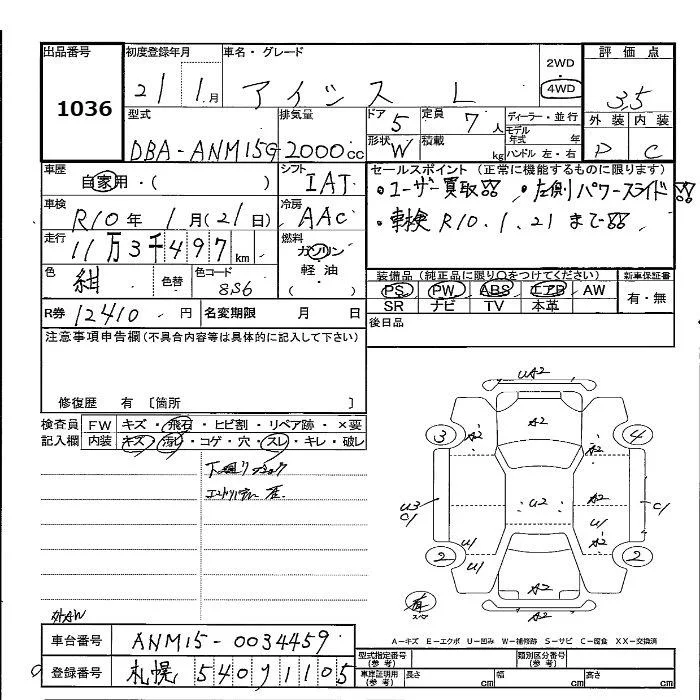 出品番号 初度登録年月 車名・グレード 2WD ・ 4WD 評価点
1036 21 1月 アイシス L 3.5
型式 排気量 ドア 定員 ディーラー・並行 外装 内装
DBA-ANM15G 2000cc 5 7人 モデル年式 年 D C
形状 W 積載 kg ハンドル 左・右
車歴 シフト セールスポイント (正常に機能するものに限ります)
自家用・( ) IAT ・ユーザー買取!! ・左側パワースライド!!
車検 冷房 ・車検R10.1.21まで!!
R10年 1月(21日) AAC
走行 燃料
11万3千497km ガソリン
軽・油
( )
色 紺 色替 色コード 8S6
装備品(純正品に限り○をつけてください) 新車保証書
PS PW ABS エアB AW 有・無
SR ナビ TV 本革
R券 12410円 名変期限 月 日 後日品
注意事項申告欄(不具合内容等は具体的に記入して下さい)
修復歴 有 〔箇所 〕
検査員 FW キズ・飛石・ヒビ割・リペア跡・×要
記入欄 内装 キズ・汚れ・コゲ・穴・スレ・キレ・破レ
UA2
A2
3 A2 4
U3 C1 U2 A2 C1
U1 U1 A2
2 U1 A2 2
A2
有 スペア
外AW A-キズ E-エクボ U-凹み W-補修跡 S-サビ C-腐食 XX-交換済
車台番号 ANM15-0034459 型式指定番号(参考) 類別区分番号(参考)
登録番号 札幌 540 ソ 1105 車庫証明用(参考) 長さ cm 幅 cm 高さ cm